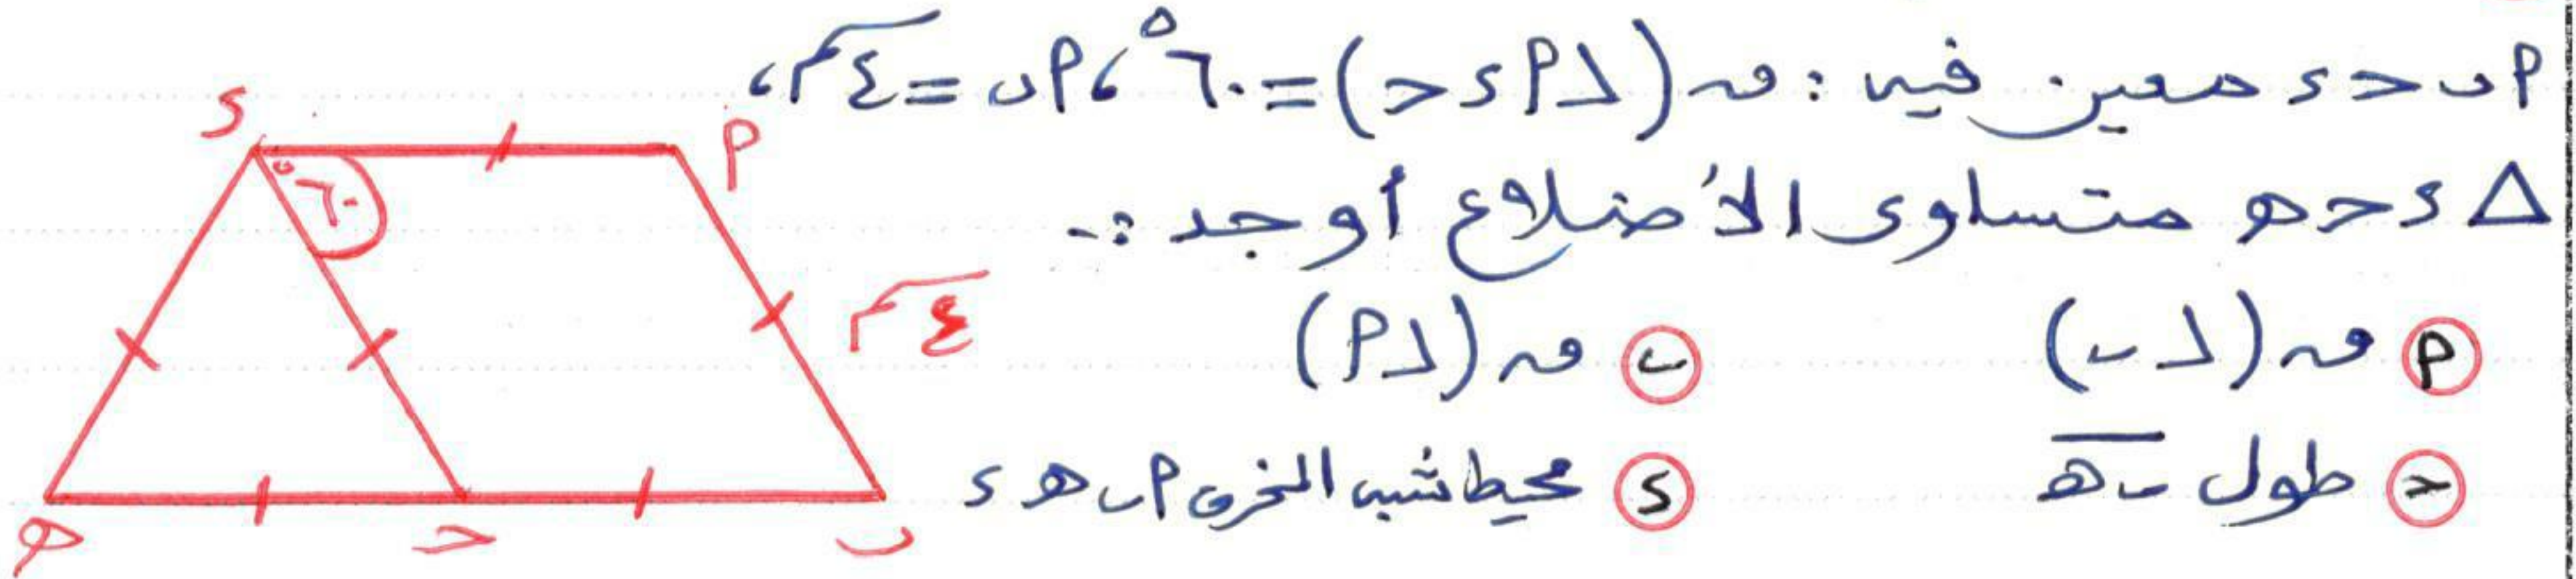 أ ب ح ء معين فيه : ق (∠ أ ء ح) = ٦٠° ، أ ب = ٤ سم ،
△ ء ح هـ متساوى الأضلاع أوجد :-
أ ق (∠ ب) ب ق (∠ أ)
ح طول ب هـ ء محيط شبه المنحرف أ ب هـ ء
ء أ
٦٠°
٤ سم
هـ ح ب